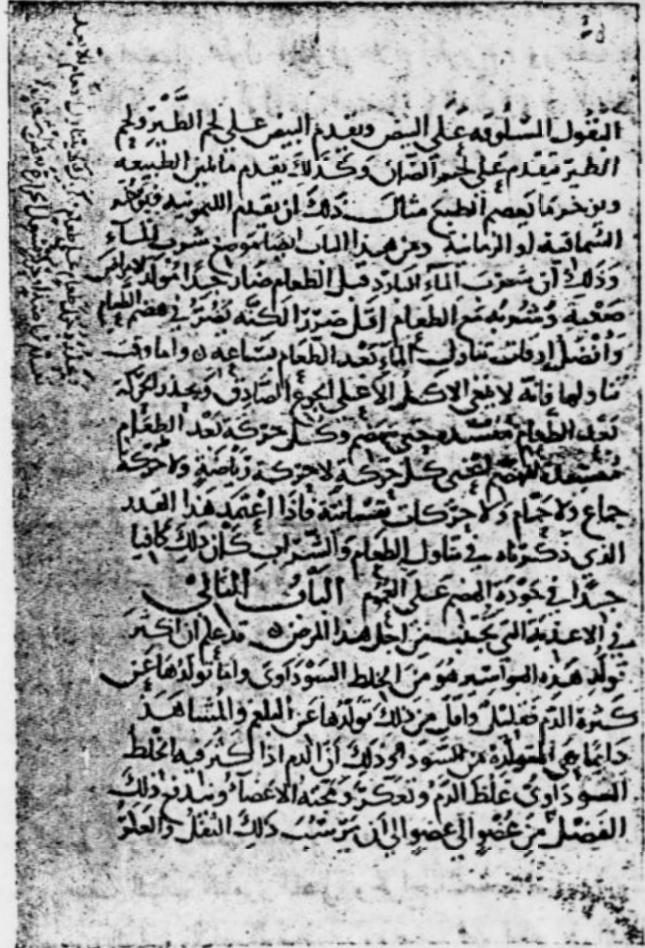 البقول المسلوقه على البيض ويقدم البيض على لحم الطير ولحم
الطير مقدم على لحم الضان وكذلك يقدم ما يلين الطبيعه
ويوخر ما يعصم الطبع مثال ذلك ان يقدم الليمونيه ويوخر
السماقية او الرمانية ومن هذا الباب ايضا شرب الماء
وذلك ان شرب الماء البارد قبل الطعام ضار جدا مولد لامراض
صعبة وشربه مع الطعام اقل ضررا لكنه يضر في هضم الطعام
وافضل اوقات تناول الماء بعد الطعام بساعه واما وقت
تناولهما فانه لا ينبغي الاكل الا على الجوع الصادق ويحذر الحركة
بعد الطعام حتى ينهضم وكل حركة بعد الطعام
الهضم اعني كل حركة لا حركة رياضة ولا حركة
جماع ولا حمام ولا حركات نفسانية فاذا اعتمد هذا القدر
الذي ذكرناه في تناول الطعام والشراب كان ذلك كافيا
جدا في جودة الهضم على العموم الباب الثاني
في الاغذية التي تجتنب من اجل هذا المرض قد علم ان اكثر
تولد هذه البواسير هو من الخلط السوداوي واما تولدها عن
كثرة الدم فقليل واقل من ذلك تولدها عن البلغم والمشاهد
دايما هي المتولدة من السودا وذلك ان الدم اذا كثر فيه الخلط
السوداوي غلظ الدم وتعكر ومجته الاعضاء ويندفع ذلك
الفضل من عضو الى عضو الى ان يرسب ذلك الثفل والغلظ